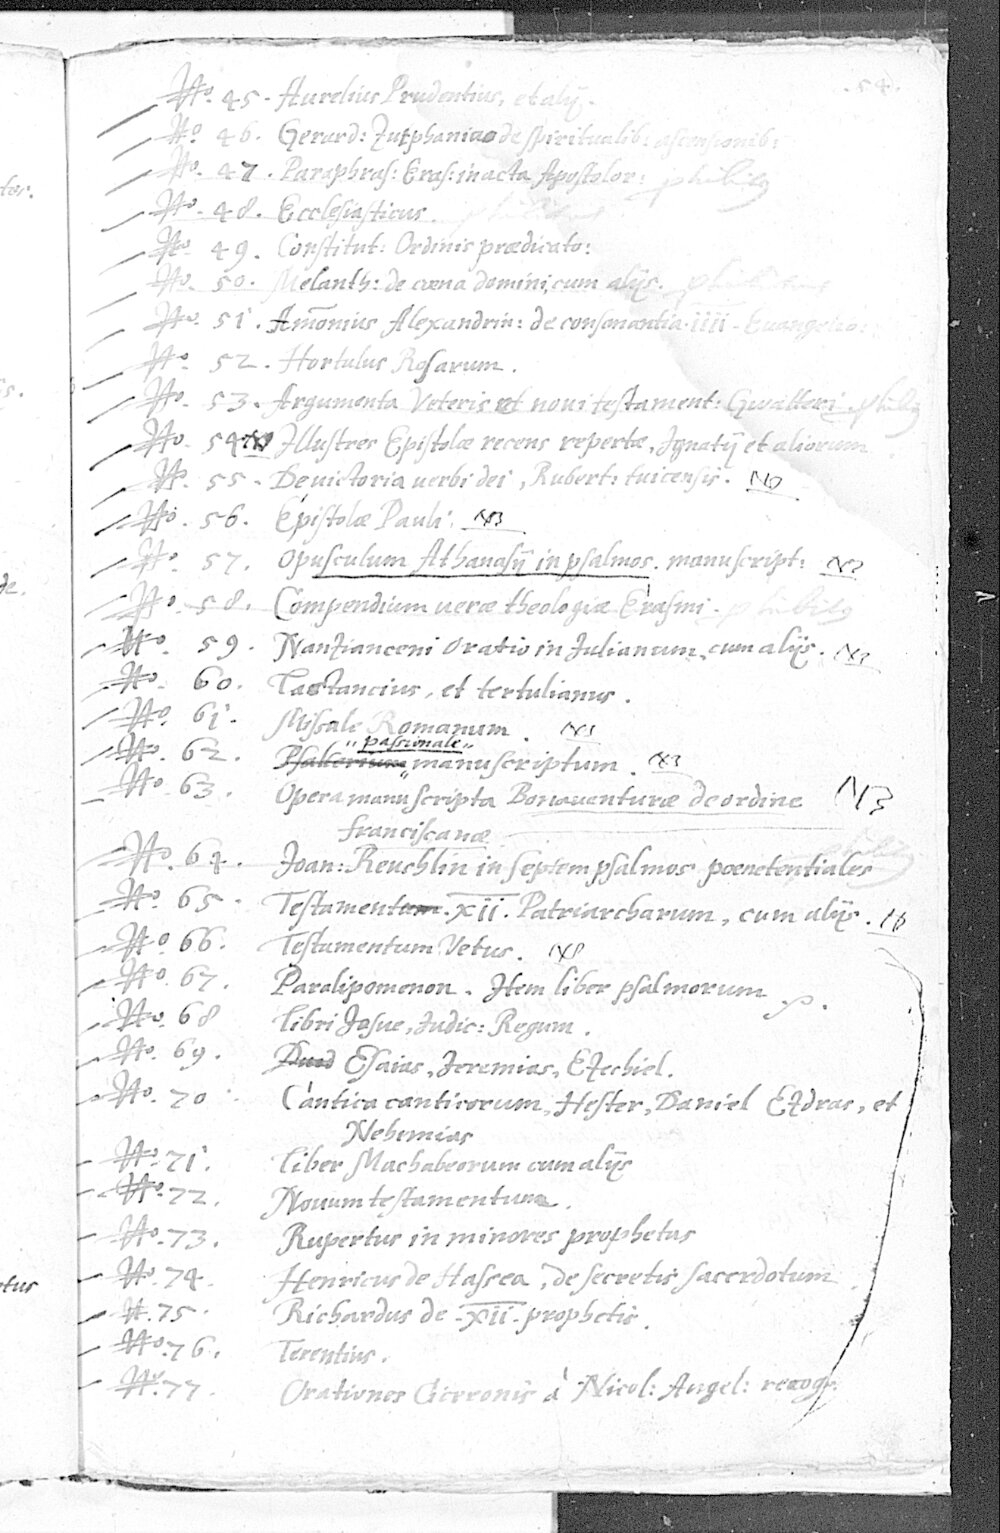 . 54 .
No. 45 . Aurelius Prudentius, et alij.
No. 46 . Gerard: Zutphanias de spiritualib: ascensionib:
No. 47 . Paraphras: Eras: in acta Apostolor:
No. 48 . Ecclesiasticus.
No. 49 . Constitut: Ordinis prædicato:
No. 50 . Melanth: de cœna domini, cum alijs.
No. 51 . Amonius Alexandrin: de consonantia . iiii . Euangelio:
No. 52 . Hortulus Rosarum .
No. 53 . Argumenta Veteris et noui testament: Gwalteri
No. 54 Illustres Epistolæ recens repertæ, Ignatij et aliorum
No. 55 . De uictoria uerbi dei, Rubert: tuicensis . NB
No. 56 . Epistolæ Pauli . NB
No. 57 . Opusculum Athanasij in psalmos . manuscript: NB
No. 58 . Compendium ueræ theologiæ Erasmi .
No. 59 . Nanzianceni Oratio in Iulianum, cum alijs . NB
No. 60 . Lactancius, et tertulianus .
No. 61 . Missale Romanum . NB
"passionale"
No. 62 . Psalterium manuscriptum . NB
No. 63 . Opera manuscripta Bonauenturæ de ordine NB
franciscanæ
No. 64 . Joan: Reuchlin in septem psalmos pœnetentiales
No. 65 . Testamentum . xii . Patriarcharum, cum alijs . NB
No. 66 . Testamentum Vetus . NB
No. 67 . Paralipomenon . Item liber psalmorum
No. 68 libri Josue, Judic: Regum .
No. 69 . Duod Esaias, Jeremias, Ezechiel .
No. 70 Cantica canticorum, Hester, Daniel Ezdras, et
Nehemias
No. 71 . Liber Machabeorum cum alijs
No. 72 . Nouum testamentum .
No. 73 . Rupertus in minores prophetas
No. 74 Henricus de Hassea, de secretis sacerdotum .
N. 75 . Richardus de . xii . prophetis .
No. 76 . Terentius .
No. 77 . Orationes Cicronis à Nicol: Angel: recogr.